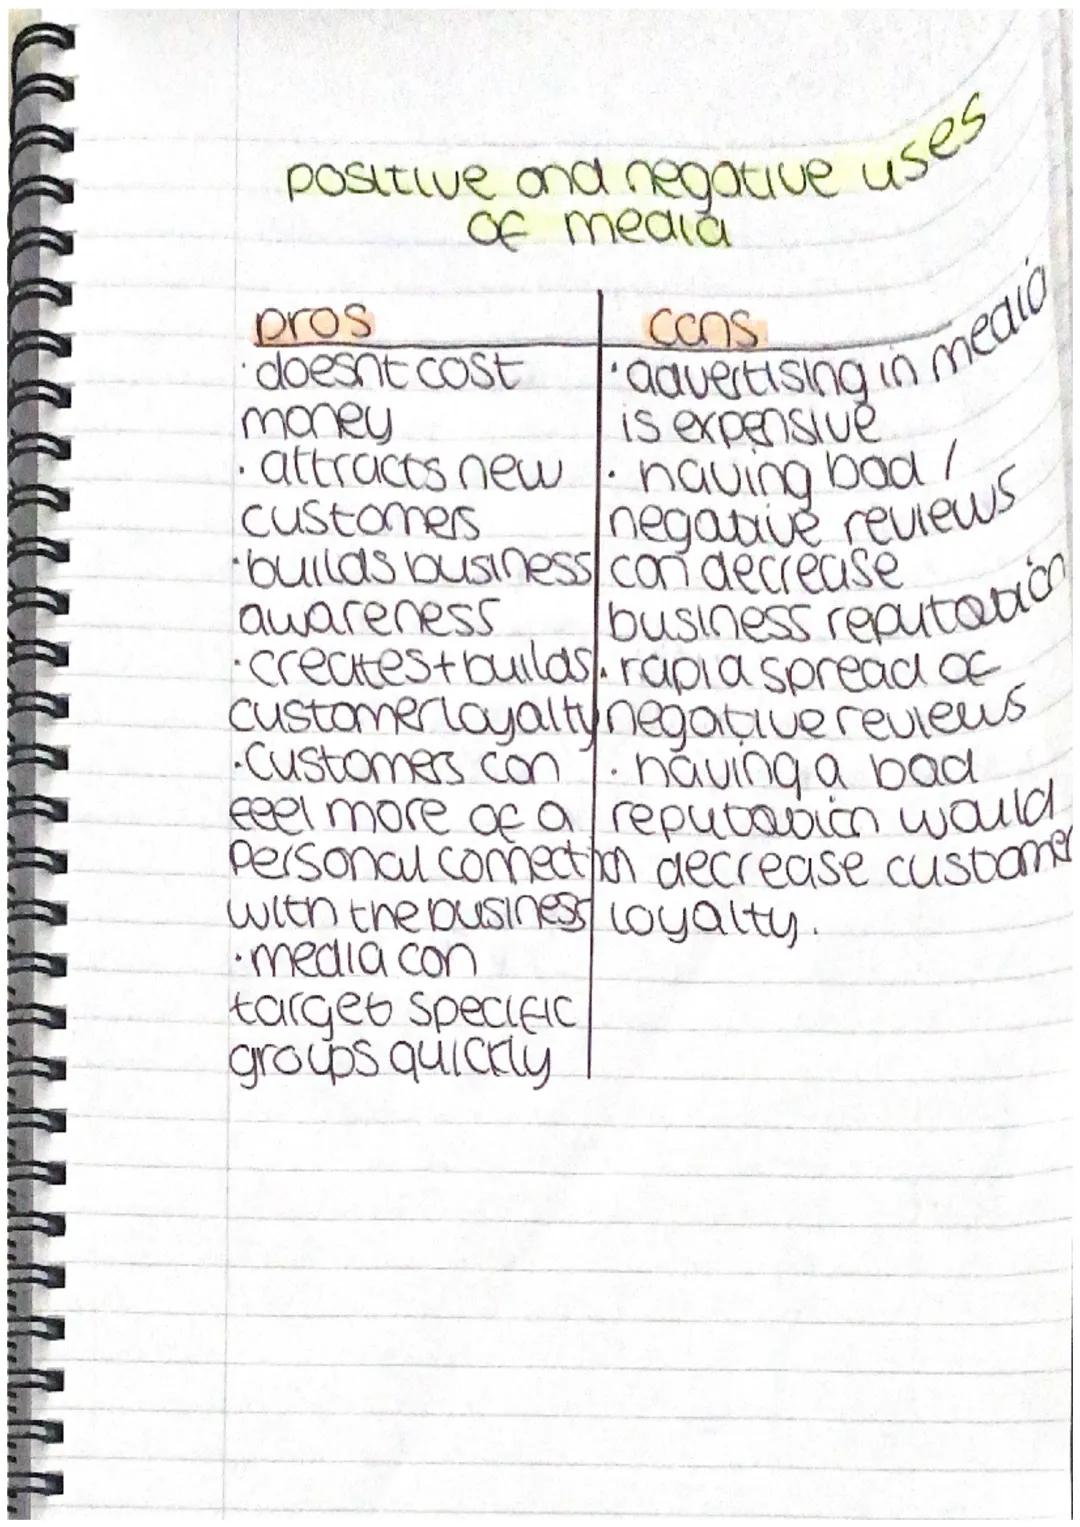 positive and negative uses
of media
pros
·doesnt cost
money
·attracts new
customers
·builds business
awareness
·creates+builds
customer loyalty
·Customers can
feel more of a
personal connection
with the business
·media can
target specific
groups quickly
cons
·advertising in media
is expensive
·having bad/
negative reviews
can decrease
business reputation
·rapid spread of
negative reviews
·having a bad
reputation would
decrease customer
loyalty.